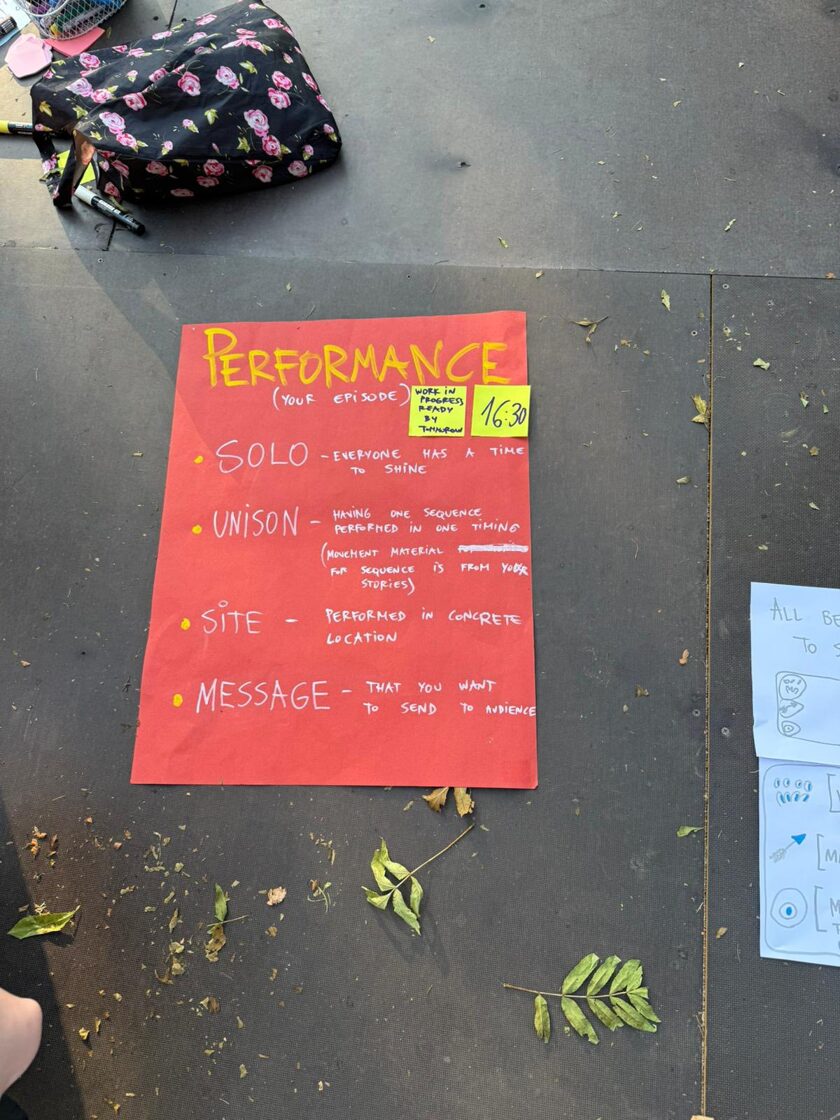 PERFORMANCE
(YOUR EPISODE)
WORK IN
PROGRESS
READY
BY
TOMORROW
16:30
• SOLO - EVERYONE HAS A TIME
TO SHINE
• UNISON - HAVING ONE SEQUENCE
PERFORMED IN ONE TIMING
(MOVEMENT MATERIAL
FOR SEQUENCE IS FROM YOUR
STORIES)
• SITE - PERFORMED IN CONCRETE
LOCATION
• MESSAGE - THAT YOU WANT
TO SEND TO AUDIENCE
ALL BE
TO S
[M